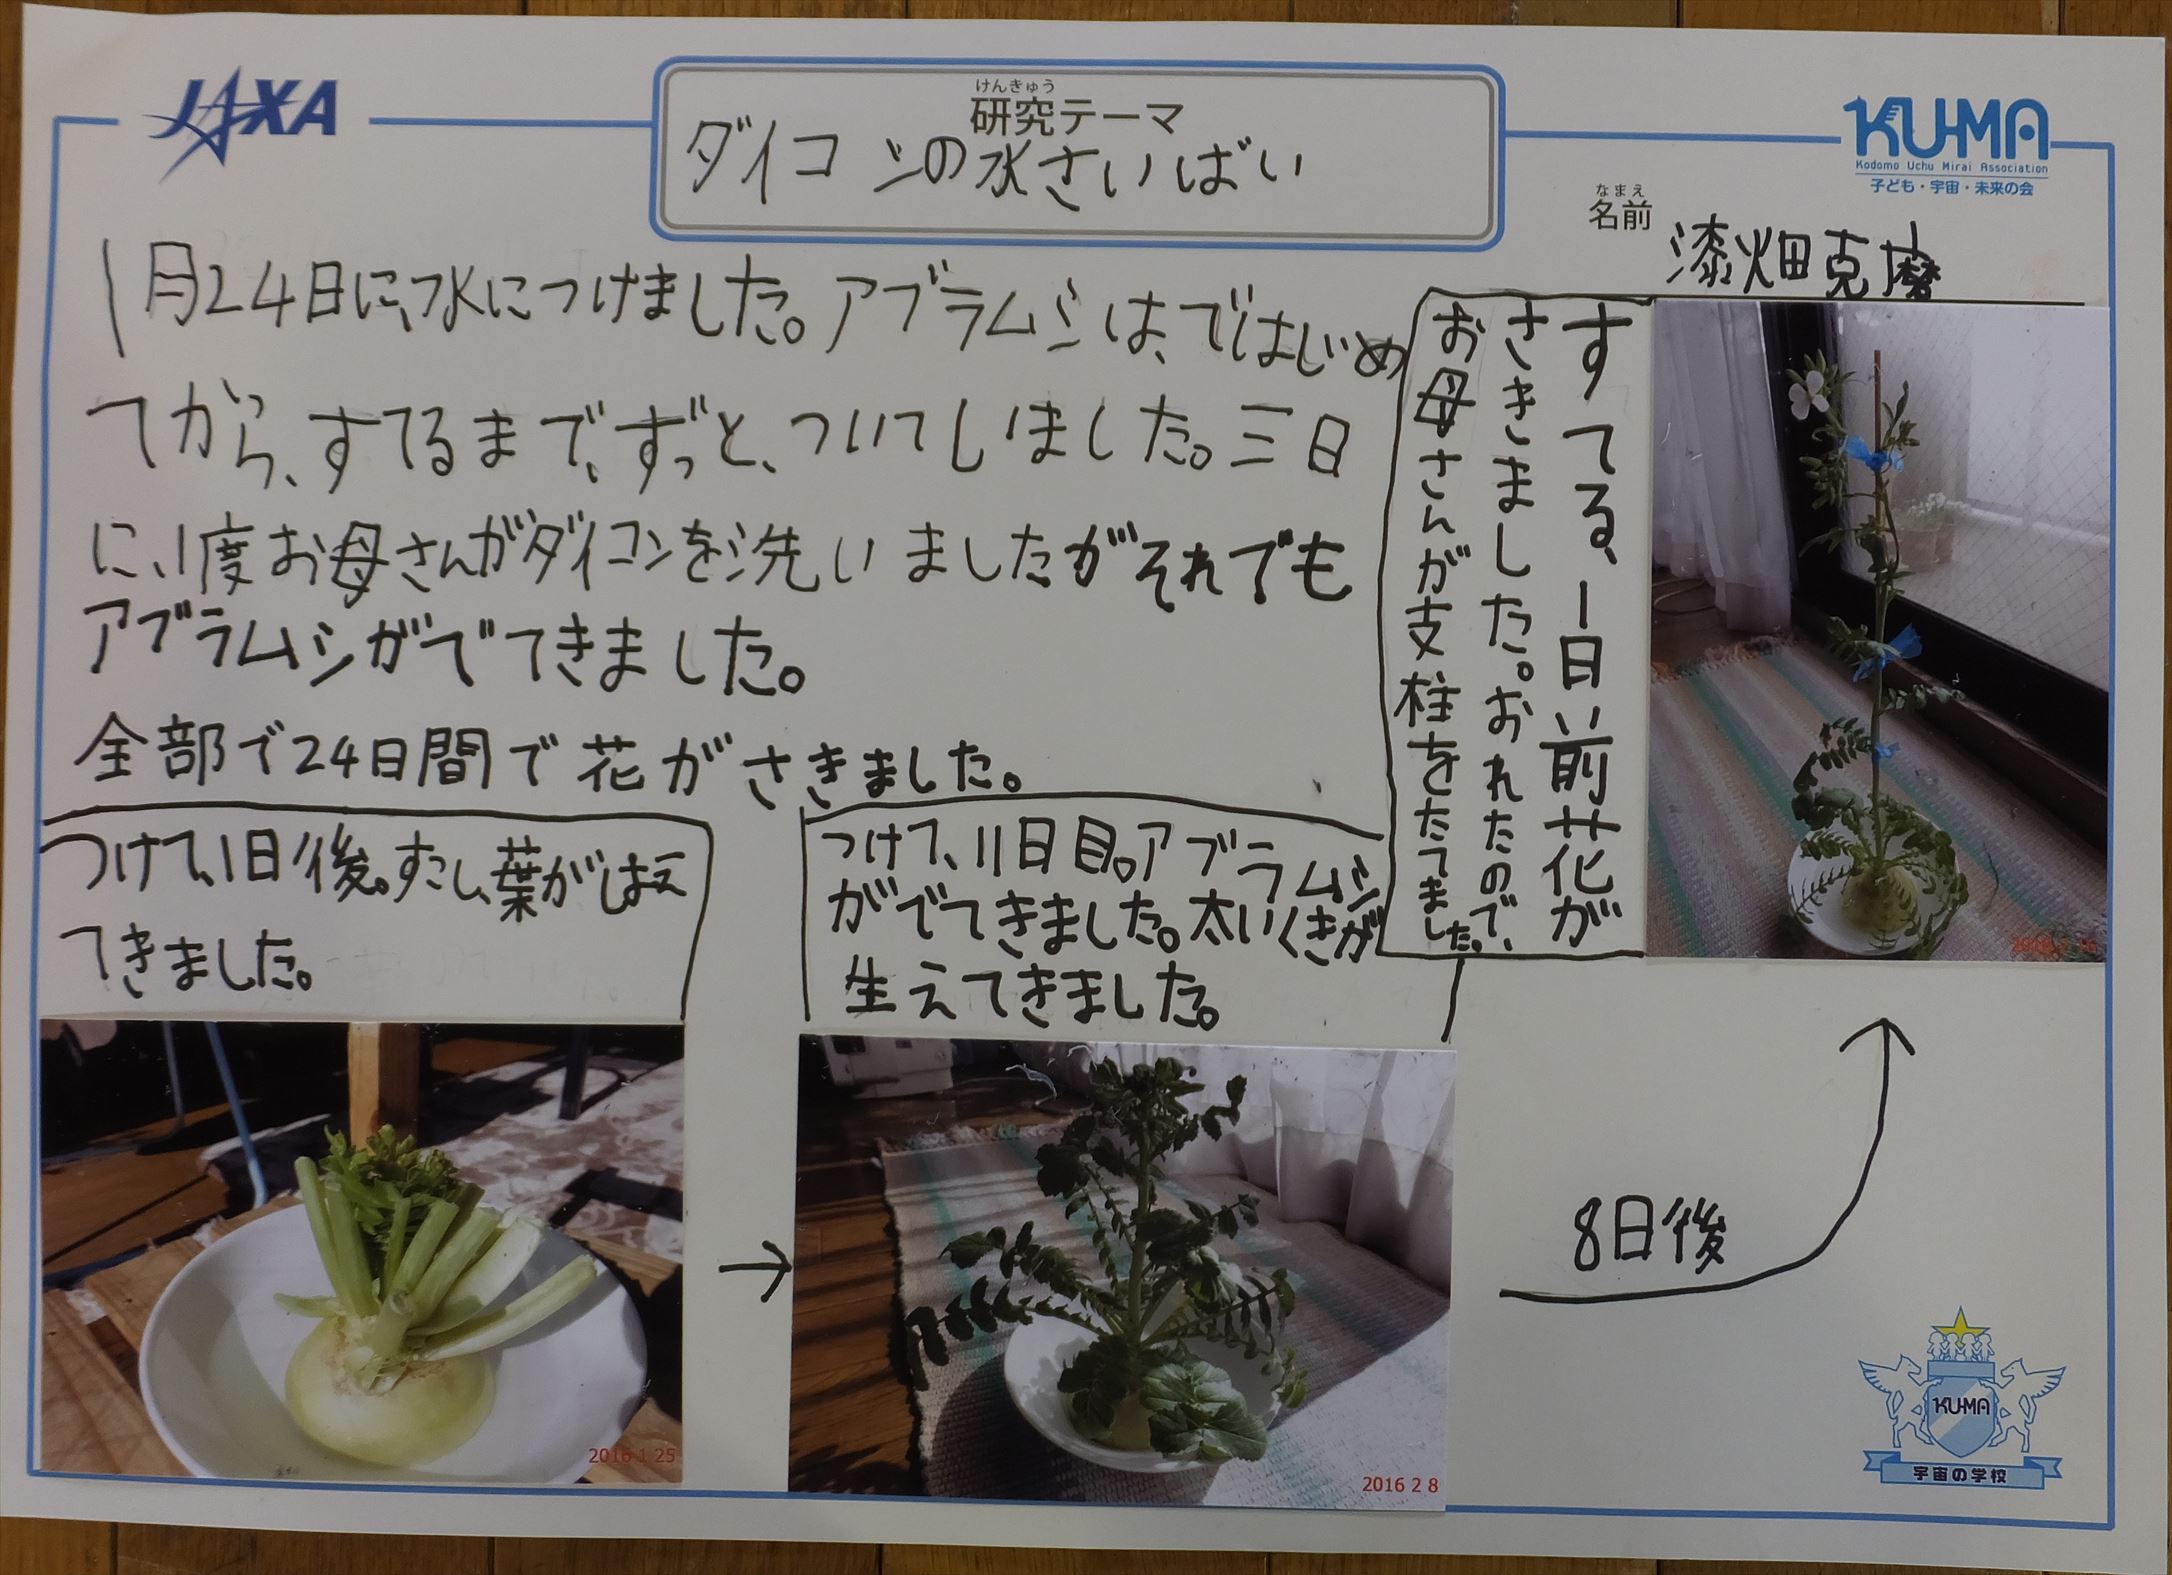 JAXA
けんきゅう
研究テーマ
ダイコンの水さいばい
KU-MA
Kodomo Uchu Mirai Association
子ども・宇宙・未来の会
なまえ
名前
漆畑克磨
1月24日に、水につけました。アブラムシは、ではじめ
てから、すてるまで、ずっと、ついてしまいました。三日
に、1度お母さんがダイコンを洗いましたがそれでも
アブラムシがでてきました。
全部で24日間で花がさきました。
すてる、1日前花が
さきました。おれたので、
お母さんが支柱をたてました。
2016 2 16
つけて、1日後。すこし、葉がはえ
てきました。
2016 1 25
つけて、11日目。アブラムシ
がでてきました。太いくきが
生えてきました。
2016 2 8
8日後
KU-MA
宇宙の学校